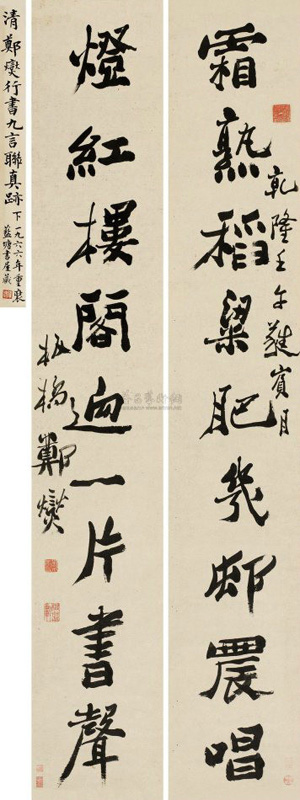 霜熟稻粱肥幾邨農唱
乾隆壬午蕤賓月
燈紅樓閣迥一片書聲
板橋鄭燮
清鄭燮行書九言聯真跡 下
一九六六年重裝
藍塘書屋藏